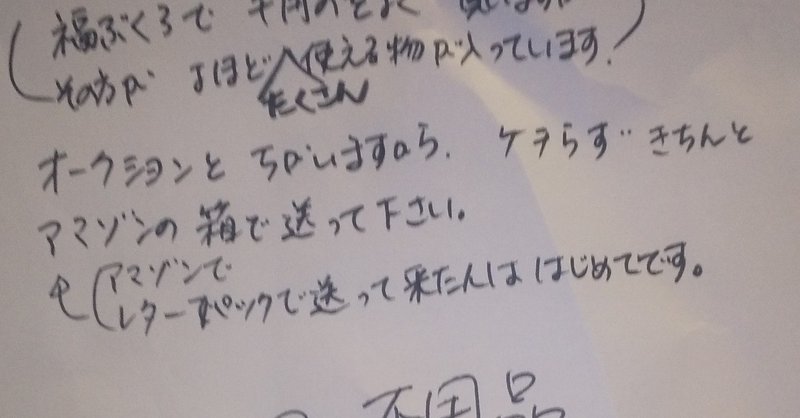 福ぶくろで 千円のをよく
その方が よほど使える物が入っています.
たくさん
オークションと ちがいますから. ケチらず きちんと
アマゾンの 箱で送って下さい。
アマゾンで
レターパックで送って来たんは はじめてです。
不用品